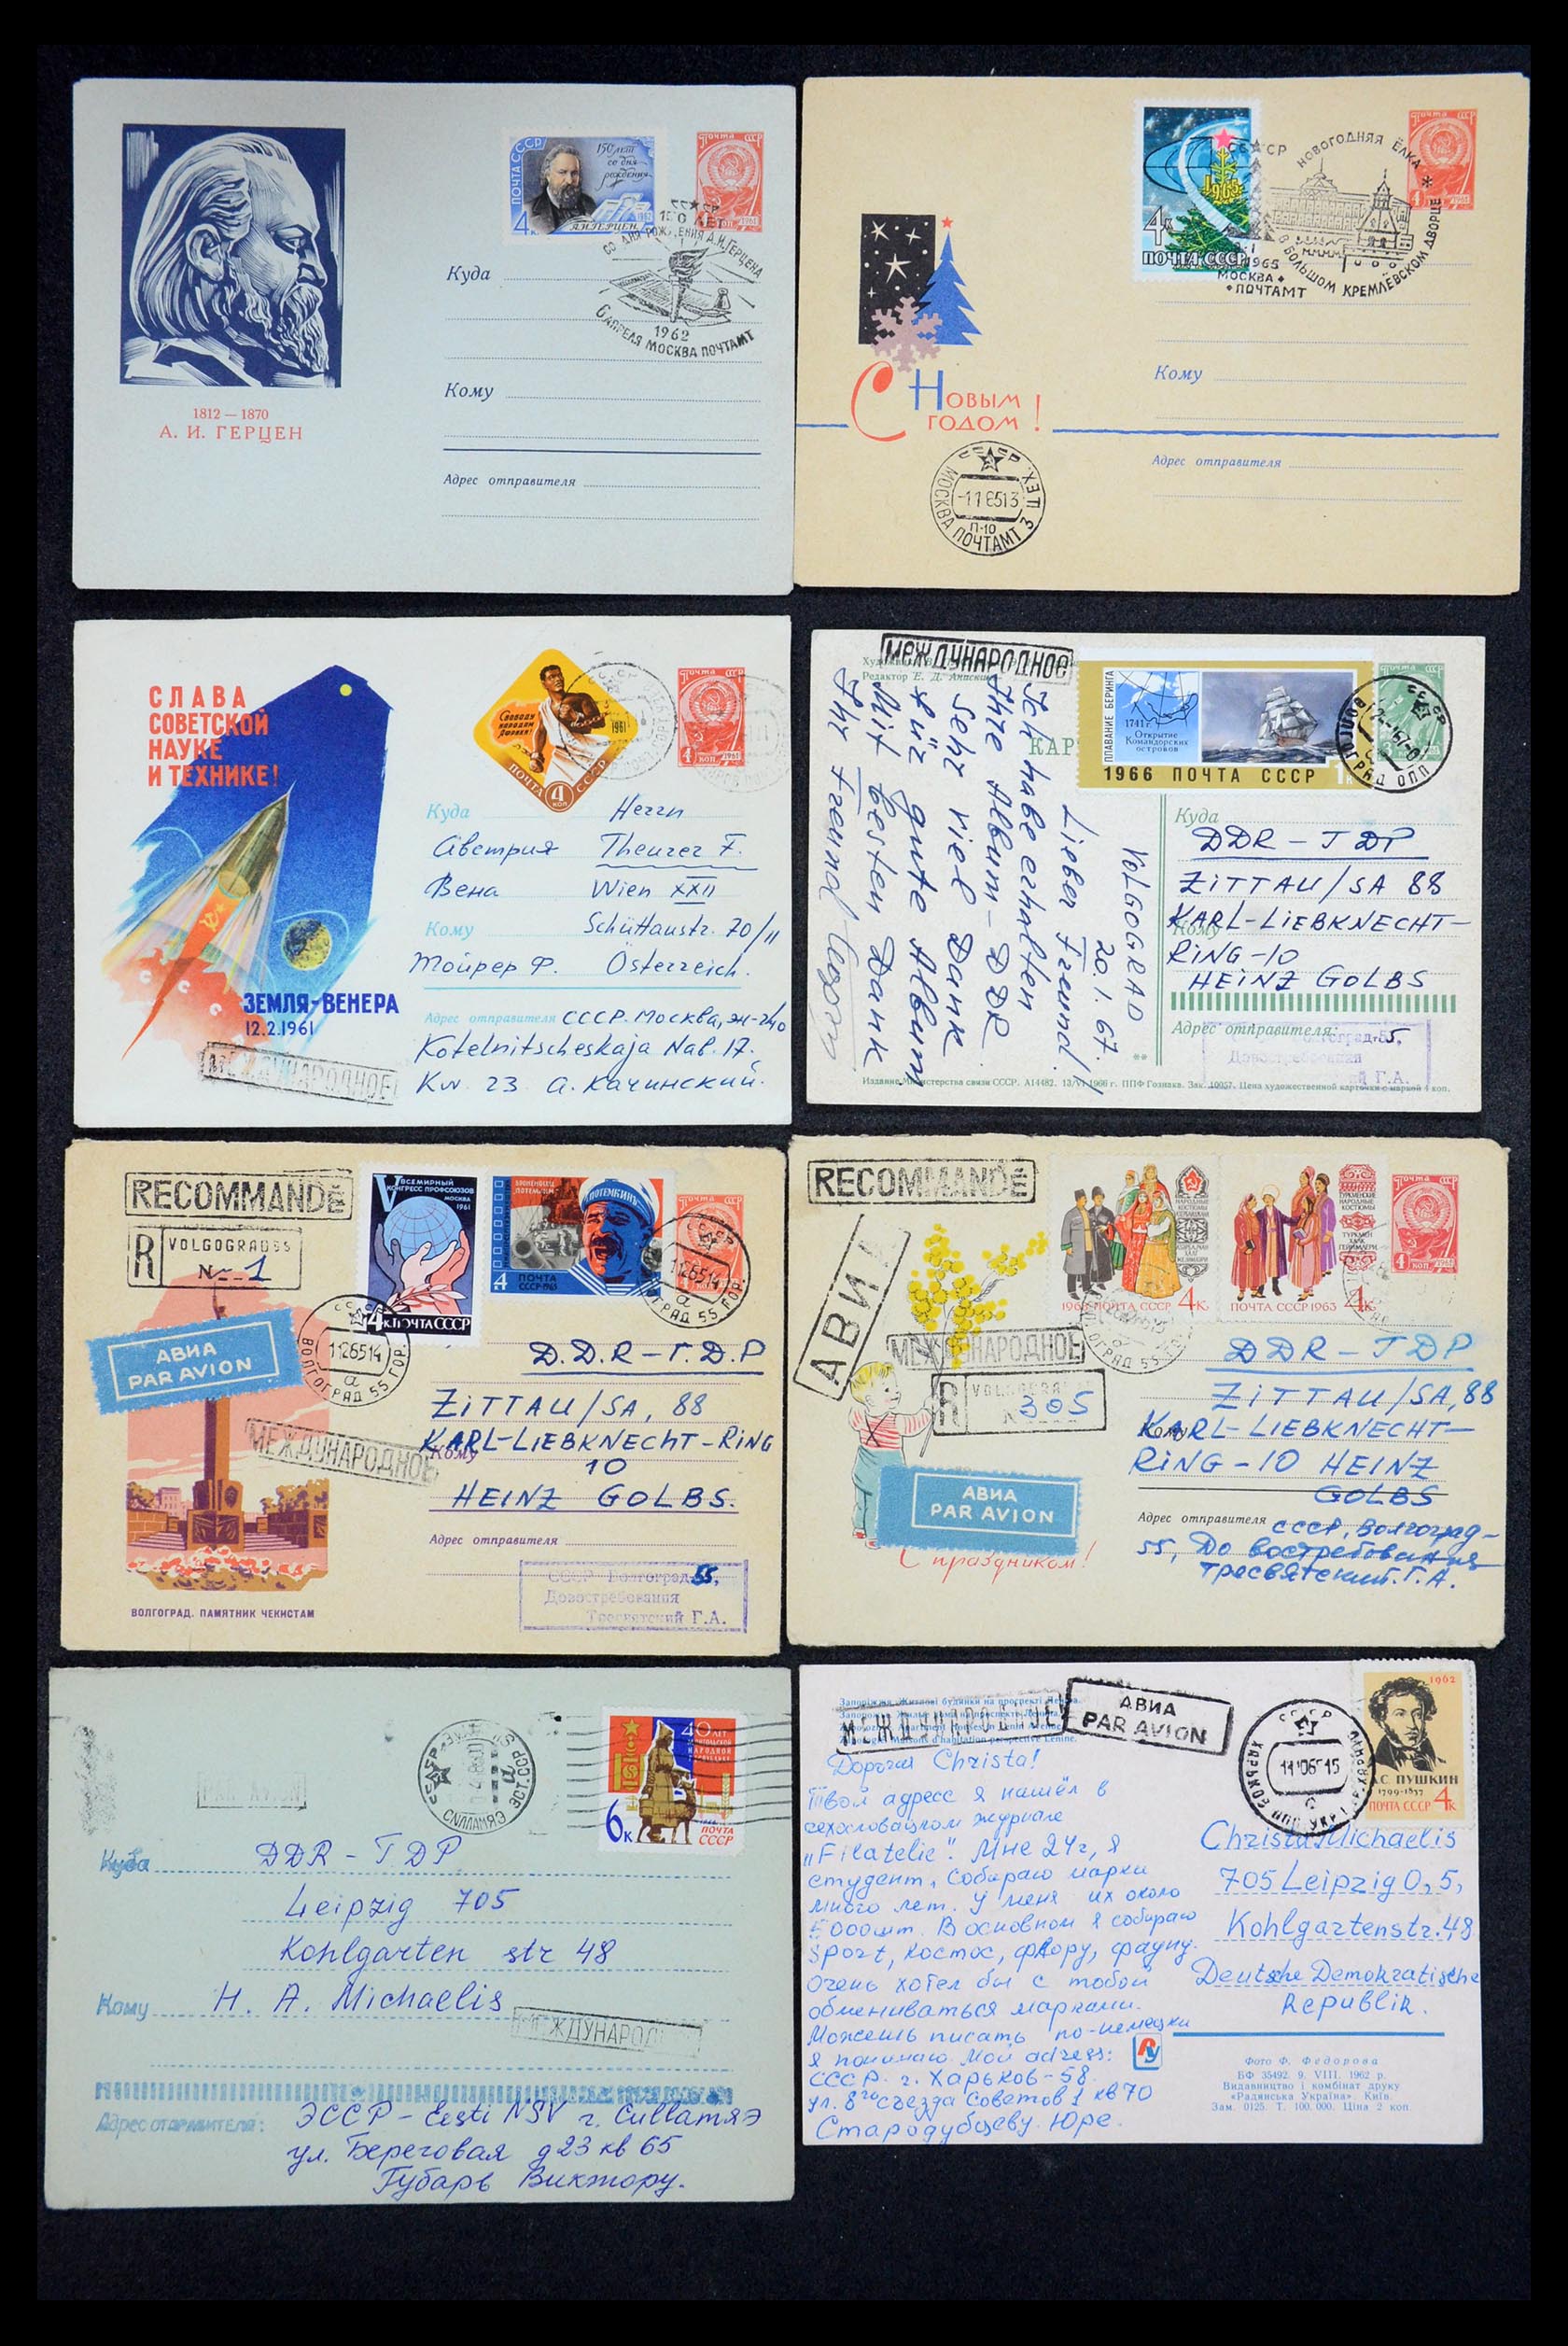 1812 — 1870
А. И. ГЕРЦЕН
ПОЧТА СССР
150 лет
со дня
рождения
4к
А.И.ГЕРЦЕН
Почта СССР
4 коп 1961
СССР
150 ЛЕТ
СО ДНЯ РОЖДЕНИЯ А.И.ГЕРЦЕНА
1962
6 АПРЕЛЯ МОСКВА ПОЧТАМТ
Куда
Кому
Адрес отправителя
1965
4к
ПОЧТА СССР
Почта СССР
СССР
НОВОГОДНЯЯ ЁЛКА *
В БОЛЬШОМ КРЕМЛЕВСКОМ ДВОРЦЕ
1965
МОСКВА
ПОЧТАМТ
С Новым
годом!
Кому
Адрес отправителя
СССР
МОСКВА ПОЧТАМТ 3 ЭКСП.
-116513
П-10
СЛАВА
СОВЕТСКОЙ
НАУКЕ
И ТЕХНИКЕ!
ЗЕМЛЯ-ВЕНЕРА
12.2.1961
МЕЖДУНАРОДНОЕ
Свободу
народам
Африки!
1961
ПОЧТА 4 КОП СССР
Почта СССР
4 коп 1961
Куда Herrn
Австрия Theurer F.
Вена Wien XXII
Кому Schüttaustr. 70/11
Тойрер Ф. Österreich.
Адрес отправителя СССР. Москва, Ж-240
Kotelnitscheskaja Nab. 17.
Kw. 23 А. Качинский.
МЕЖДУНАРОДНОЕ
Редактор Е. Д. Анискин
ПЛАВАНИЕ БЕРИНГА
1741 г.
Открытие
Командорских
островов
1966 ПОЧТА СССР 1к
VOLGOGRAD
20.1.67.
Lieber Freund!
Ich habe erhalten
Ihre Album-DDR
Sehr viel Dank
für gute Album
Mit besten Dank
Ihr Freund
Куда
DDR - ГDP
ZITTAU/SA 88
Кому
KARL-LIEBKNECHT-
RING-10
HEINZ GOLBS
Адрес отправителя:
Волгоград-55,
Довостребования
Г.А.
Издание Министерства связи СССР. А14482. 13/VI 1966 г. ППФ Гознака. Зак. 10057. Цена художественной карточки с маркой 4 коп.
RECOMMANDÉ
R VOLGOGRAD 55
№ 1
АВИА
PAR AVION
МЕЖДУНАРОДНОЕ
V ВСЕМИРНЫЙ
КОНГРЕСС ПРОФСОЮЗОВ
МОСКВА
1961
4к ПОЧТА СССР
БРОНЕНОСЕЦ
ПОТЕМКИН
4 ПОЧТА
СССР·1965
Почта СССР
СССР
1126514
а
ВОЛГОГРАД 55 ГОР.
D.D.R-Г.D.P
ZITTAU/SA, 88
Кому
KARL-LIEBKNECHT-RING
10
HEINZ GOLBS.
Адрес отправителя
СССР Волгоград-55,
Довостребования
Тресвятский Г.А.
ВОЛГОГРАД. ПАМЯТНИК ЧЕКИСТАМ
RECOMMANDÉ
АВИА
МЕЖДУНАРОДНОЕ
R VOLGOGRAD
305
АВИА
PAR AVION
С праздником!
НАРОДНЫЕ
КОСТЮМЫ
1963 ПОЧТА СССР 4к.
ТУРКМЕНСКИЕ
НАРОДНЫЕ
КОСТЮМЫ
ПОЧТА СССР 1963 4к.
Почта СССР
4 коп 1961
DDR - ГDP
ZITTAU/SA, 88
Кому
KARL-LIEBKNECHT-
RING-10 HEINZ
GOLBS
Адрес отправителя СССР, Волгоград-
55, До востребования
Тресвятский. Г.А.
PAR AVION
СССР
СИЛЛАМЯЭ ЭСТ.ССР
40 ЛЕТ
МОНГОЛЬСКОЙ
НАРОДНОЙ
6к
ПОЧТА
СССР
Куда DDR - ГDP
Leipzig 705
Kohlgarten str 48
Кому H. A. Michaelis
МЕЖДУНАРОДНОЕ
Адрес отправителя:
ЭССР - Eesti NSV г. Силламяэ
ул. Береговая д23 кв 65
Губарь Виктору.
Запоріжжя. Житлові будинки на проспекті Леніна.
МЕЖДУНАРОДНОЕ
АВИА
PAR AVION
СССР
11106515
1962
А.С. ПУШКИН
1799-1837
ПОЧТА СССР 4к
Дорогая Christa!
Твой адресс я нашёл в
чехословацком журнале
„Filatelie". Мне 24г, я
студент, собираю марки
много лет. У меня их около
5000шт. В основном я собираю
Sport, Космос, флору, фауну.
Очень хотел бы с тобой
обмениваться марками.
Можешь писать по-немецки
я понимаю. Мой adress:
СССР. г. Харьков-58
ул. 8го съезда Советов 1 кв 70
Стародубцеву Юре.
Christa Michaelis
705 Leipzig O,5,
Kohlgartenstr. 48
Deutsche Demokratische
Republik.
Фото Ф. Федорова
БФ 35492. 9. VIII. 1962 р.
Видавництво і комбінат друку
«Радянська Україна». Київ.
Зам. 0125. Т. 100.000. Ціна 2 коп.